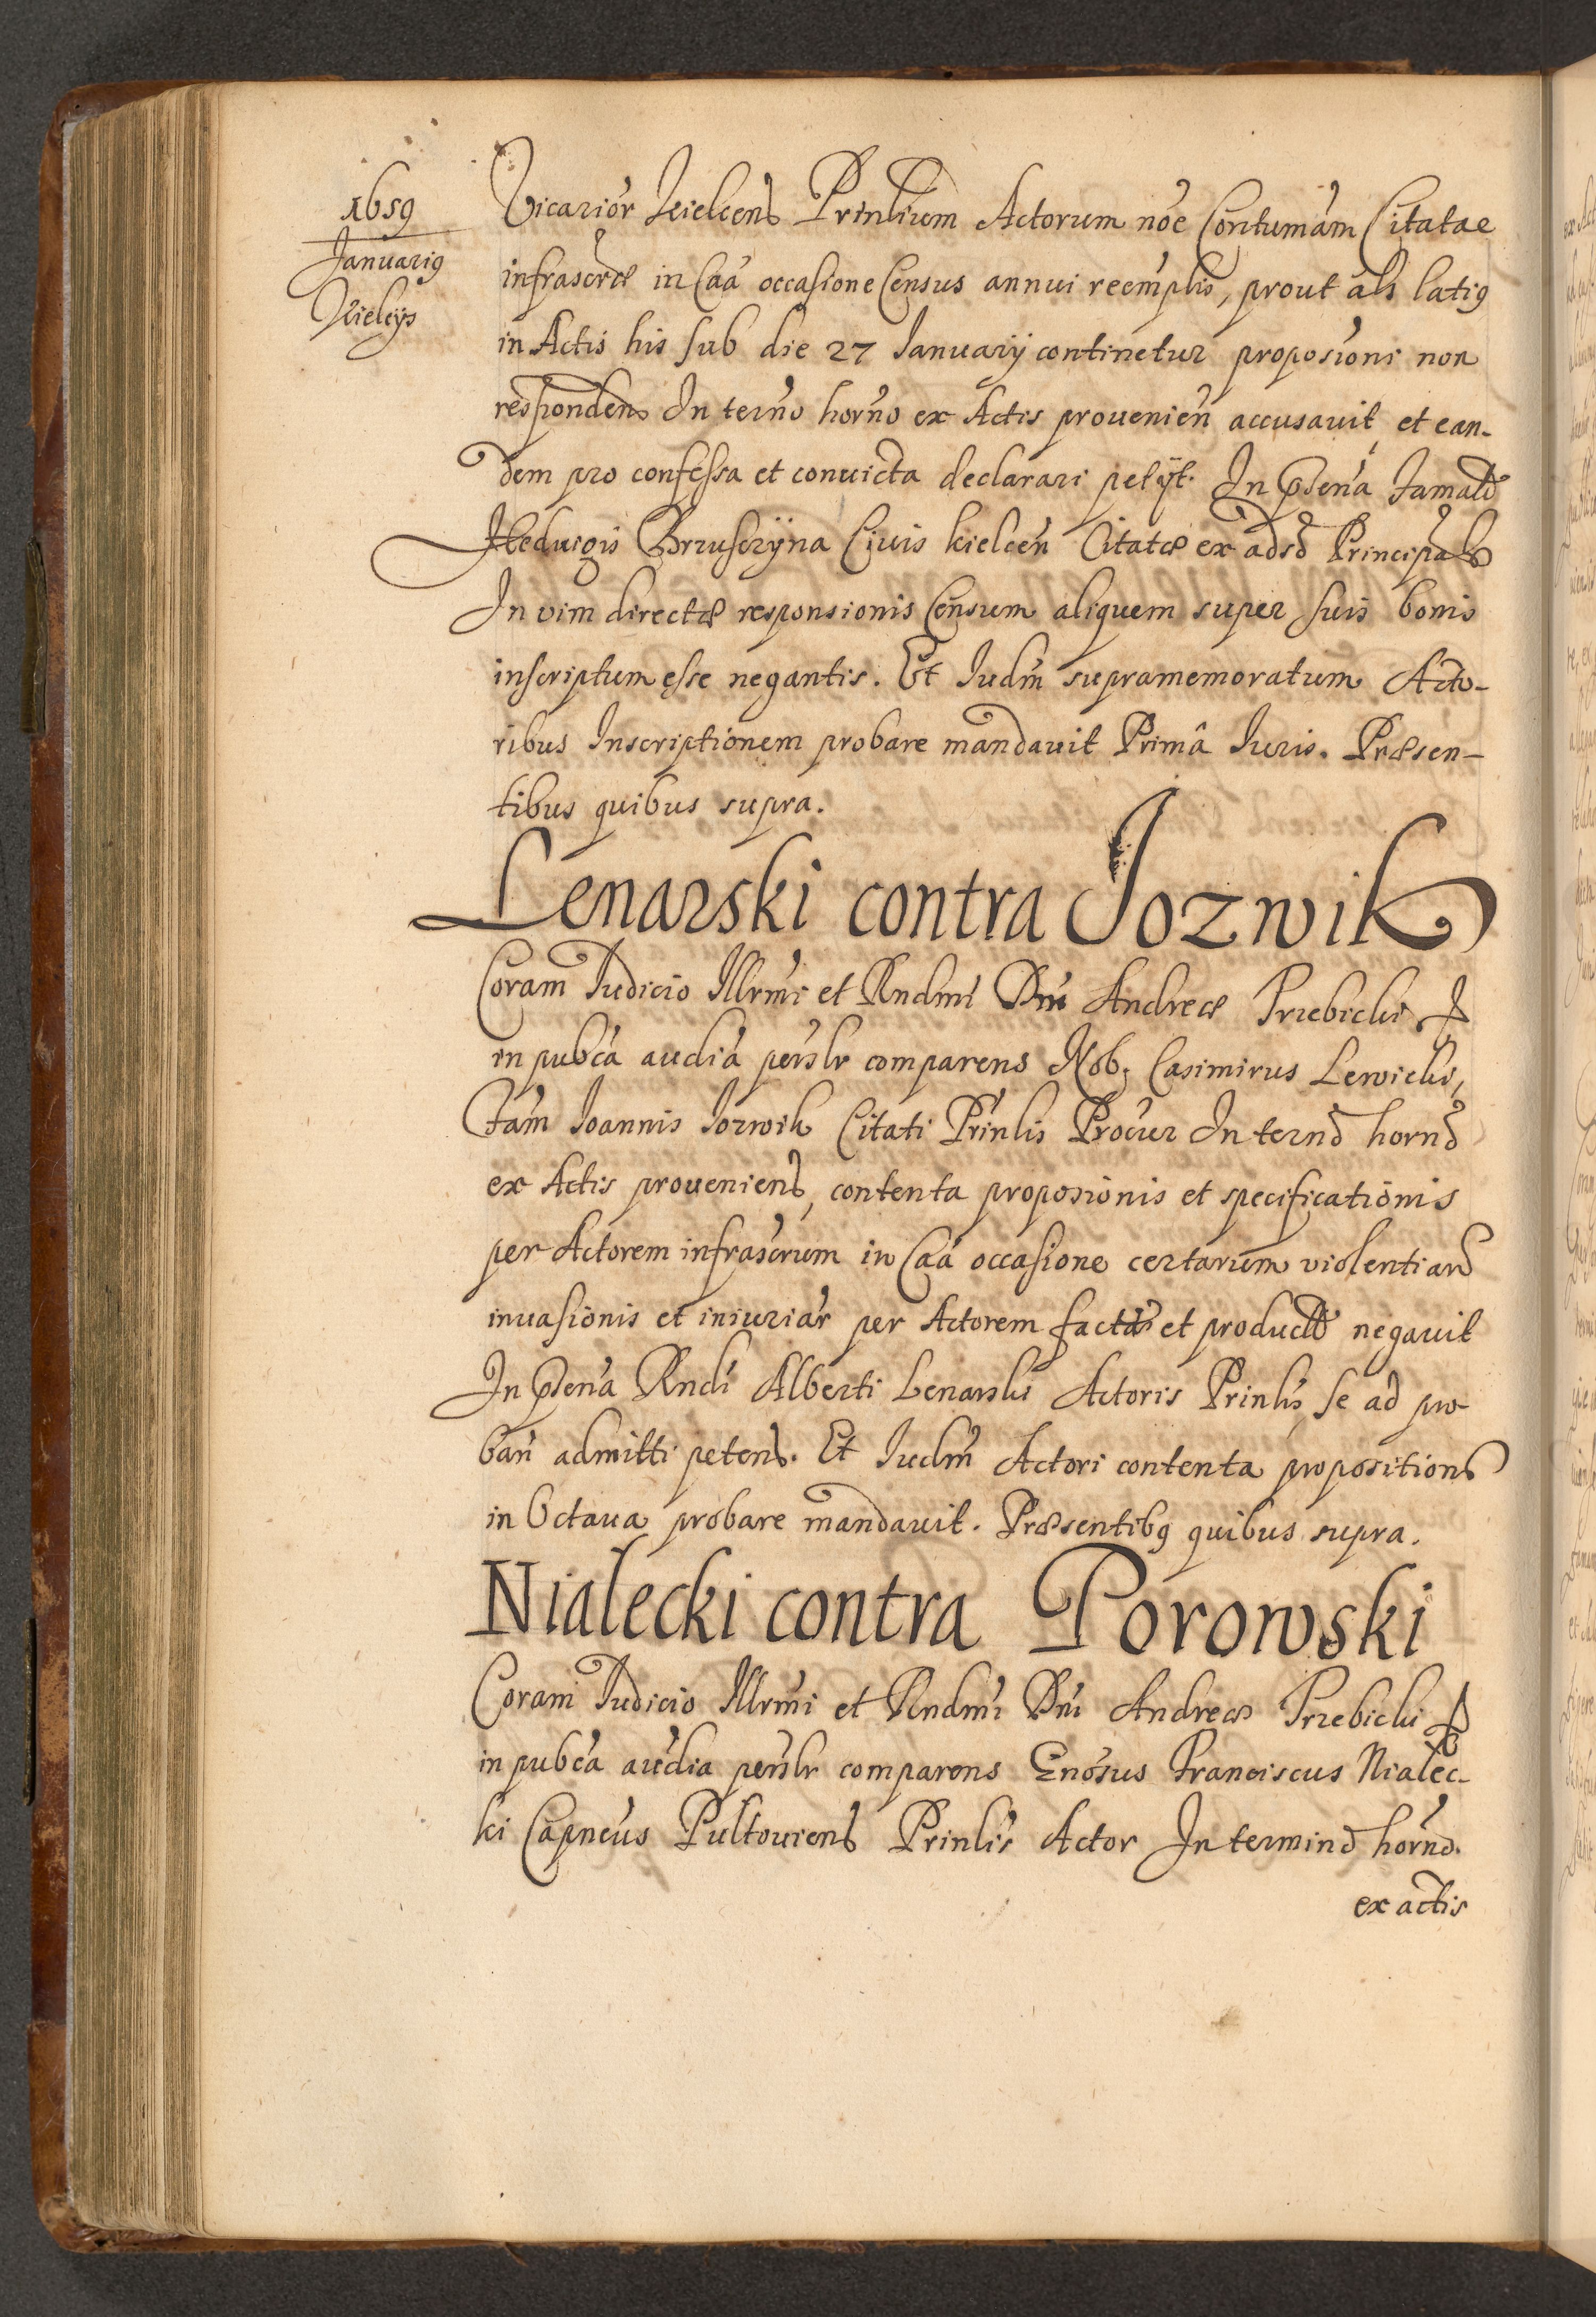 1659
Januarig
Kielcys
Vicarior Kielcens Prinlium Actorum nõe Contumam Citatae
infrascræ in Caa occasione Census annui reemptis, prout als latig
in Actis his sub die 27 Januarij continetur proposioni non
respondens In terno horno ex Actis prouenien accusavit et ean-
dem pro confessa et conuicta declarari petijt. In psena Famatæ
Heduigis Brzusczyna Civis kielcen Citatæ ex adso Principalis
In vim directæ responsionis Censum aliquem super suis bonis
inscriptum esse negantis. Et Iudm supramemoratum Acto-
ribus Inscriptionem probare mandauit Primâ Iuris. Præsen-
tibus quibus supra.
Lenarski contra Jozwik
Coram Iudicio Illrmi et Rndmi Dni Andreæ Trzebicki
in pubca audia pernslr comparens Nob. Casimirus Lewicki,
Fam Joannis Jozwik Citati Prinlis Procur In terno horno
ex Actis proueniens, contenta proposionis et specificationis
per Actorem infrascrum in Caa occasione certarum violentiar
inuasionis et iniuriar per Actorem factæ et productæ negauit
In psena Rndi Alberti Lenarski Actoris Prinlis se ad pro-
ban admitti petens. Et Iudm Actori contenta propositions
in Octaua probare mandauit. Præsentibg quibus supra.
Nialecki contra Porowski
Coram Iudicio Illrmi et Rndmi Dni Andreæ Trzebicki
in pubca audia pernslr comparens Gnosus Franciscus Nialec-
ki Capneus Pultouiens Prinlis Actor In termino horno.
ex actis